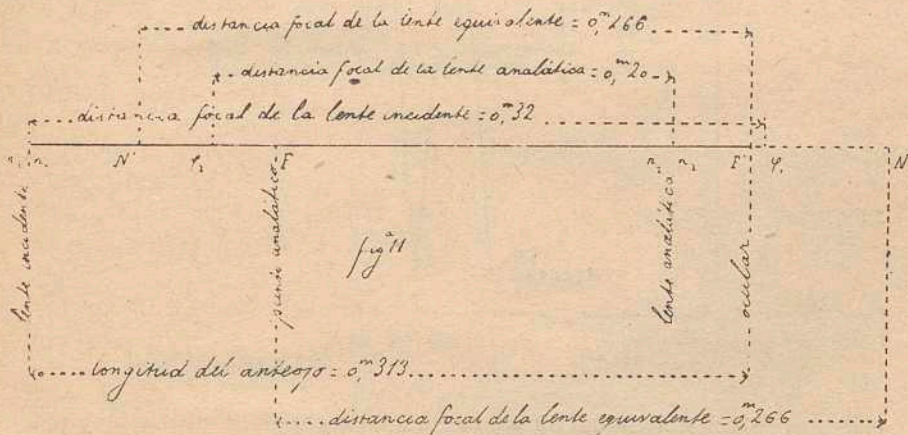 distancia focal de la lente equivalente = 0,ᵐ266
distancia focal de la lente analática = 0,ᵐ20
distancia focal de la lente incidente = 0,ᵐ32
N' φ₂ F n₂ n₂ F' φ₁ N
lente incidente
punto analático
figᵃ 11
lente analática
ocular
longitud del anteojo = 0,ᵐ313
distancia focal de la lente equivalente = 0,ᵐ266